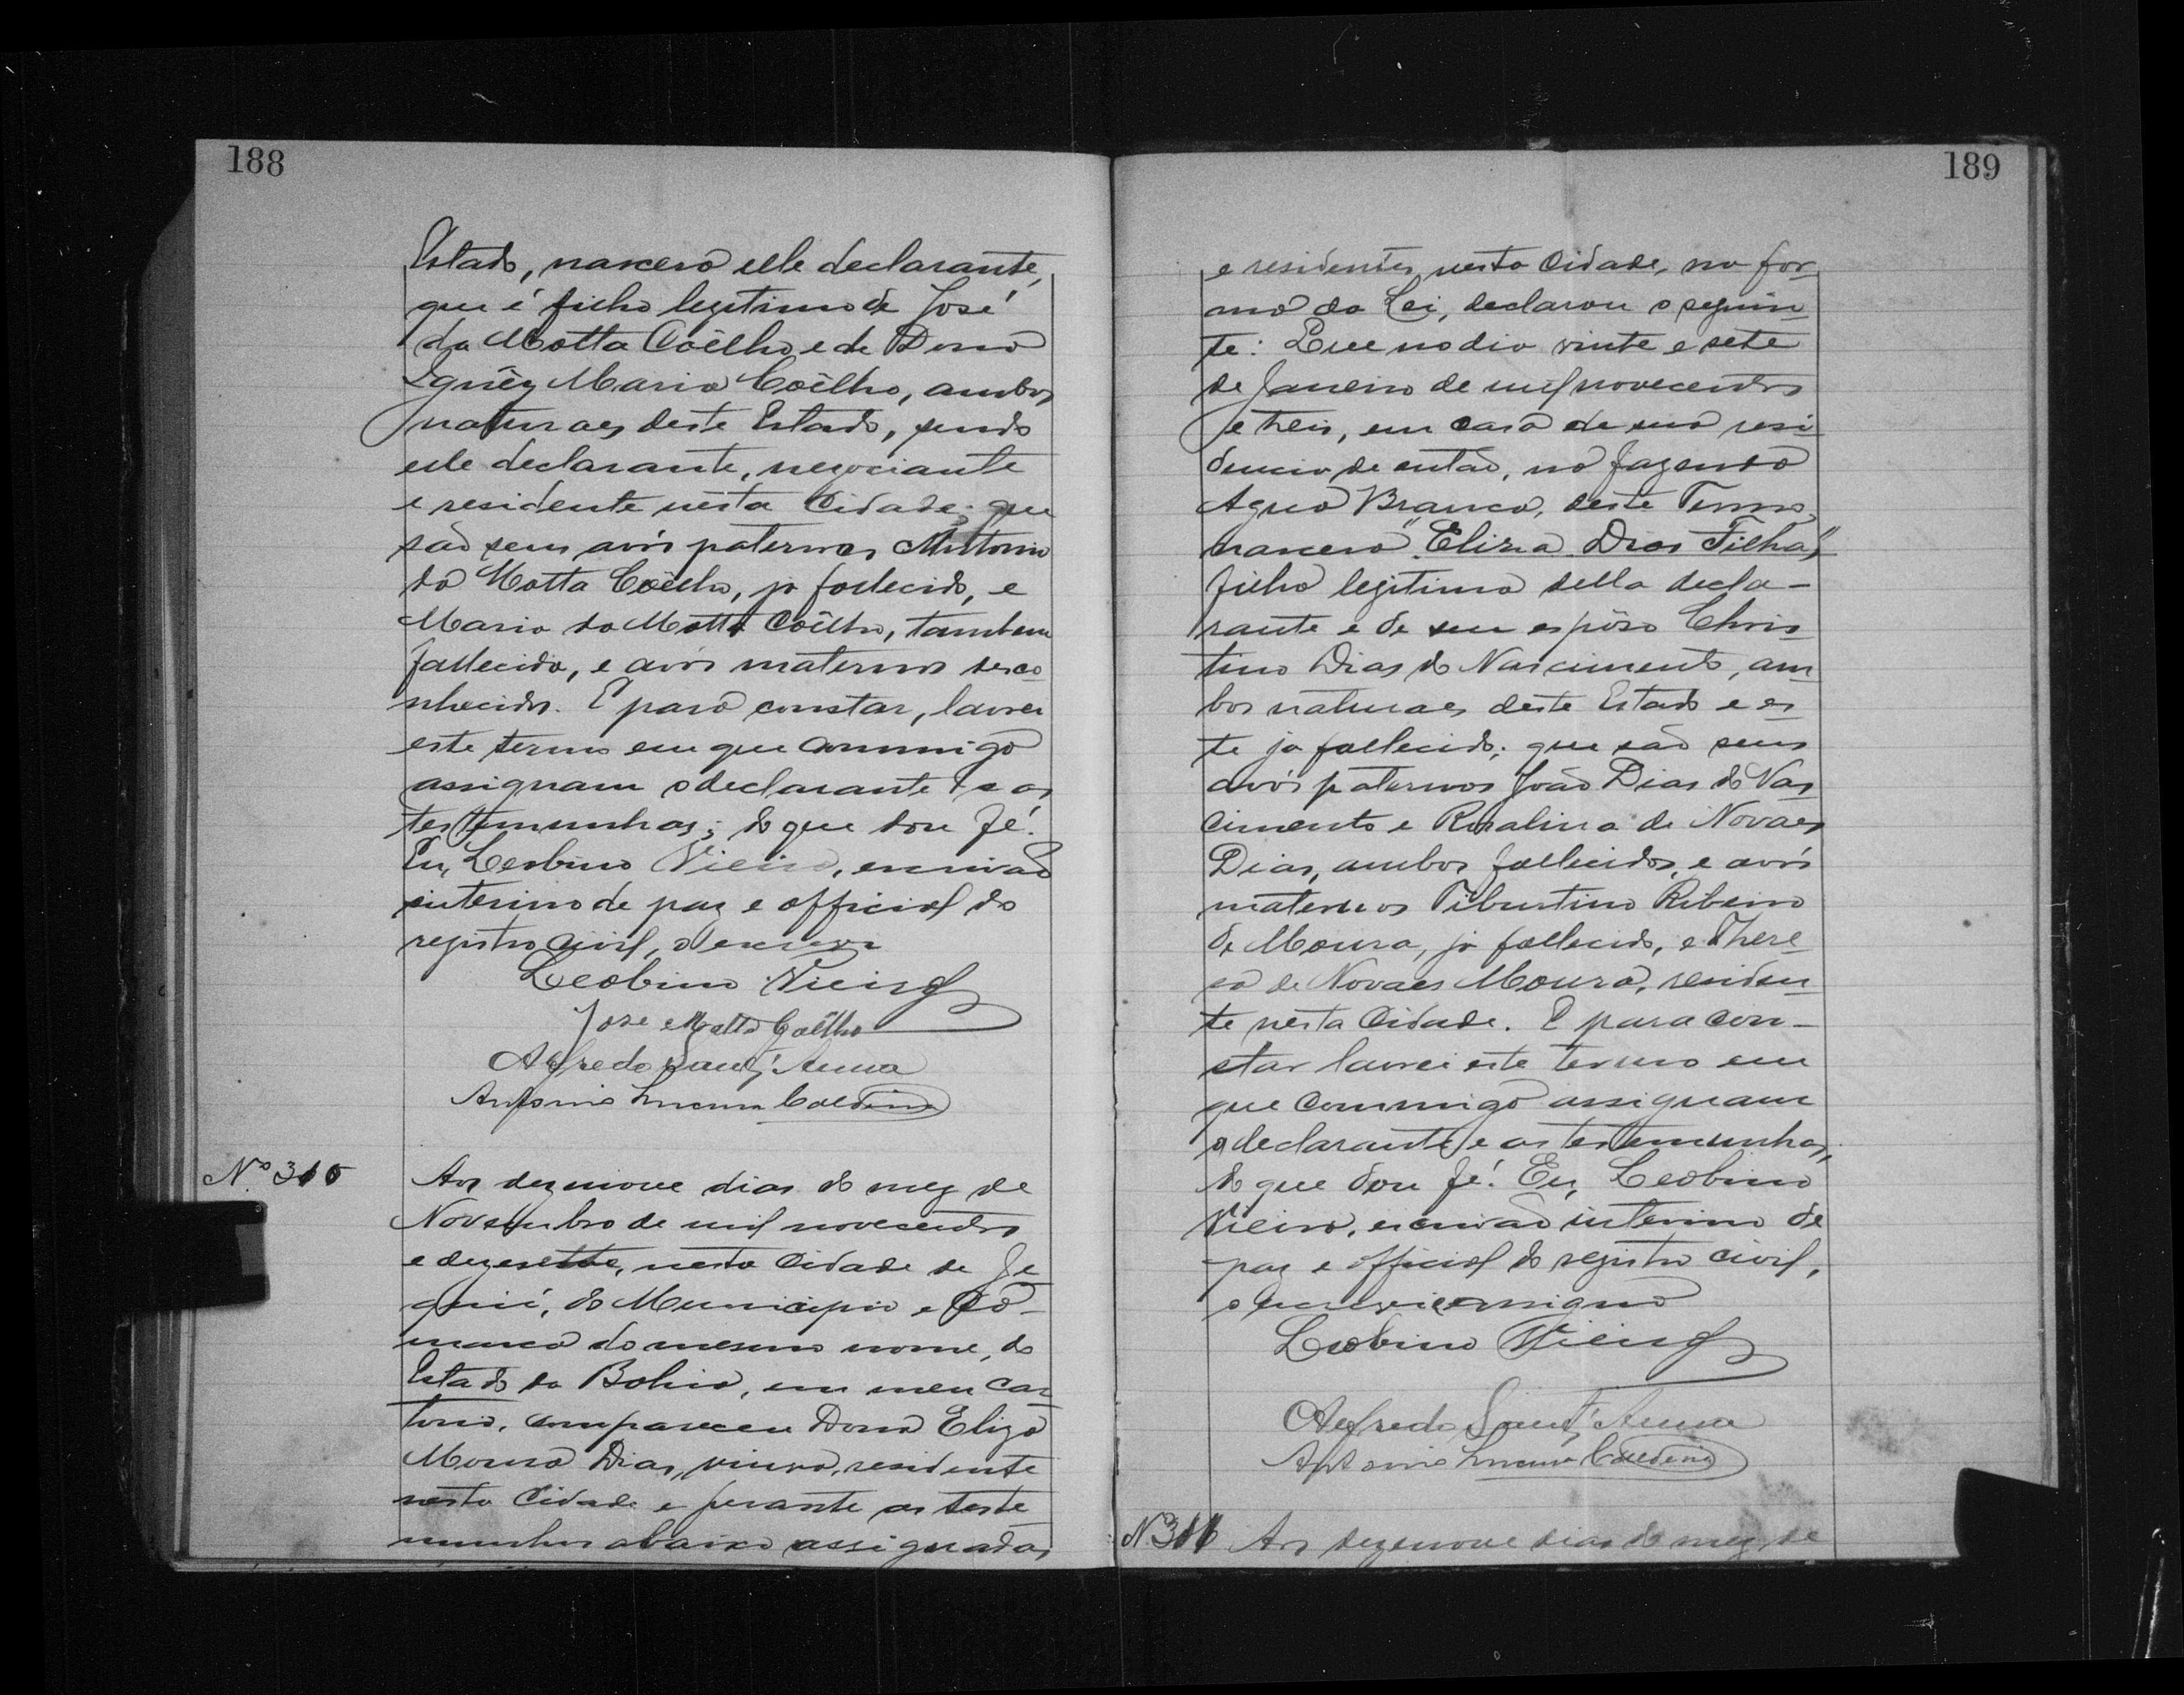 188
Estado, nasceo elle declarante,
que é filho legitimo de José
da Motta Coêlho e de Dona
Ignêz Maria Coêlho, ambos
naturaes deste Estado, sendo
elle declarante, negociante
e residente nesta Cidade; que
são seus avós paternos Antonio
da Motta Coêlho, ja fallecido, e
Maria da Motta Coêlho, tambem
fallecida, e avós maternos desco
nhecidos. E para constar, lavrei
este termo em que commigo
assignam o declarante e as
testemunhas; do que dou fé.
Eu, Leobino Vieira, escrivão
interino de paz e official do
registro civil, o escrevi
Leobino Vieira
Jose Motta Coêlho
Alfredo Sant'Anna
Antonio Lucena
Nº 315
Aos dezenove dias do mez de
Novembro de mil novecentos
e dezesette, nesta Cidade de Je
quié, do Municipio e Co-
marca do mesmo nome, do
Estado da Bahia, em meu Car
torio, compareceu Dona Eliza
Moura Dias, viuva, residente
nesta Cidade e perante as teste
munhas abaixo assignadas
189
e residentes nesta Cidade, na for
ma da Lei, declarou o seguin
te: Que no dia vinte e sete
de Janeiro de mil novecentos
e treis, em casa de sua resi
dencia de então, na fazenda
Agua Branca, deste Termo,
nasceo "Eliza Dias Filha",
filha legitima della decla-
rante e de seu espôso Chris
tino Dias do Nascimento, am
bos naturaes deste Estado e es
te ja fallecido; que são seus
avós paternos João Dias do Nas
cimento e Rosalina de Novaes
Dias, ambos fallecidos, e avós
maternos Tiburtino Ribeiro
de Moura, ja fallecido, e There
sa de Novaes Moura, residen
te nesta Cidade. E para con-
star lavrei este termo em
que commigo assignam
a declarante e as testemunhas,
do que dou fé. Eu, Leobino
Vieira, escrivão interino de
paz e official do registro civil,
o escrevi e assigno
Leobino Vieira
Alfredo Sant'Anna
Antonio Lucena
N 316 Aos dezenove dias do mez de